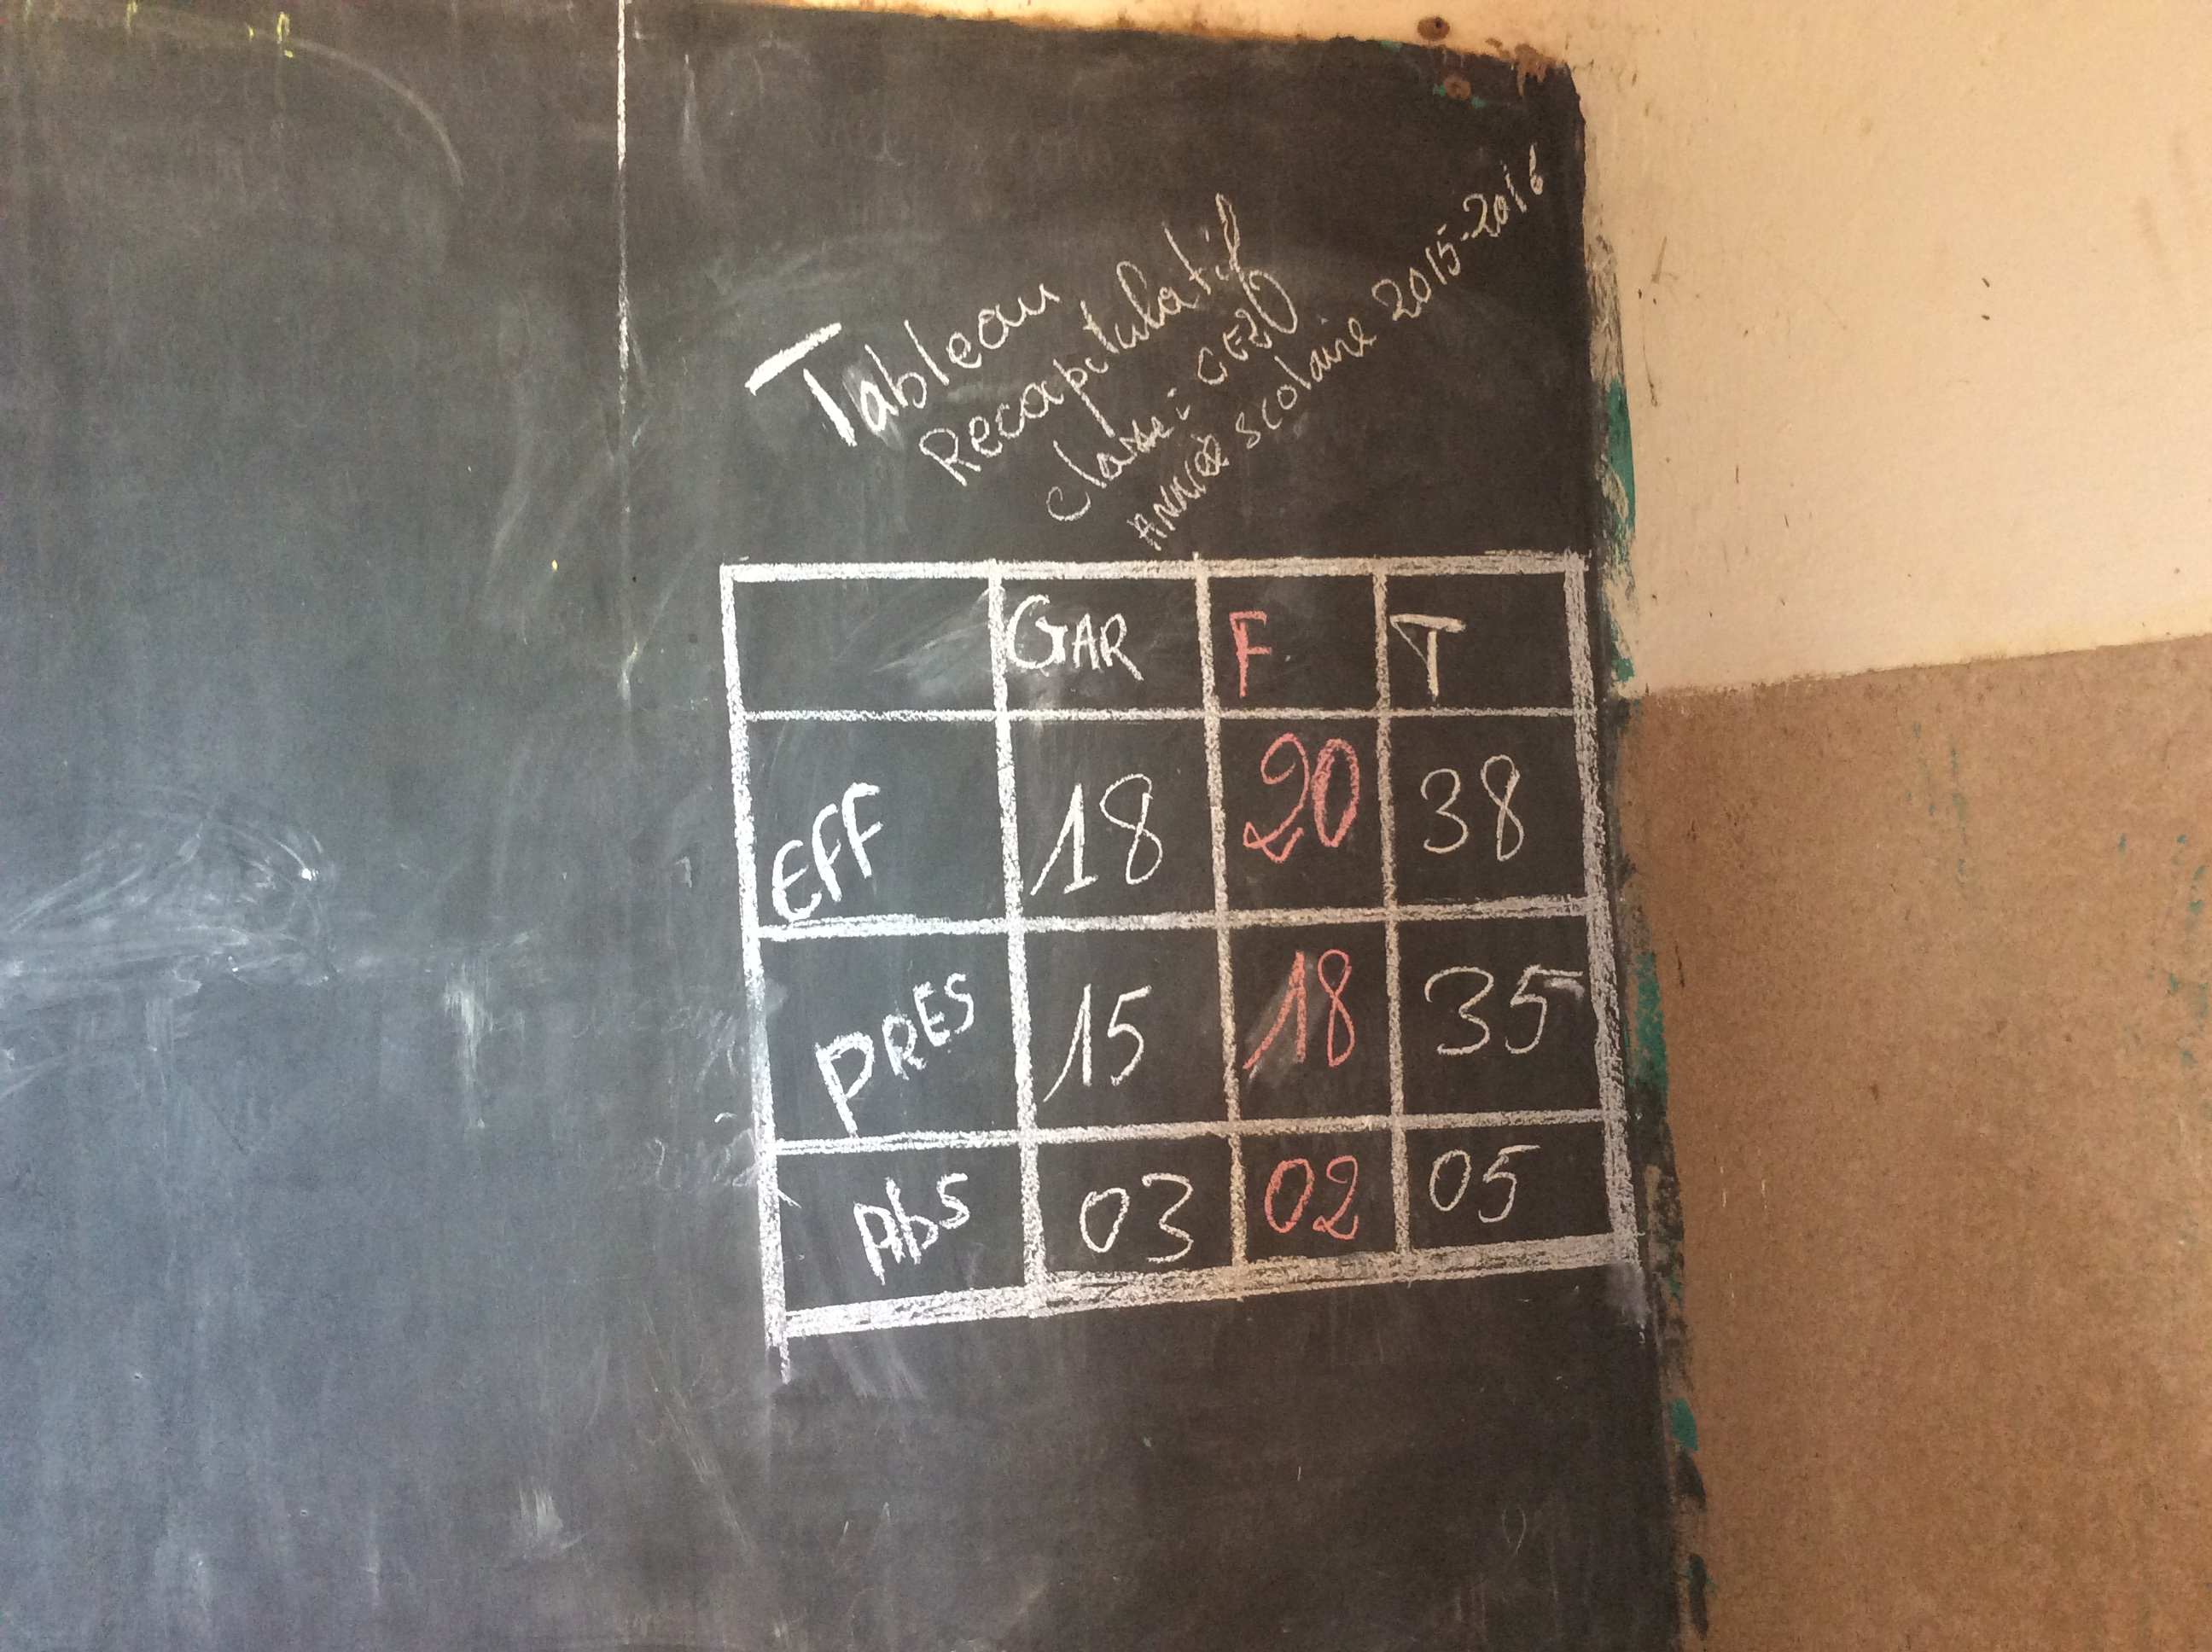 Tableau
Recapitulatif
classe: CE2D
Année scolaire 2015-2016
GAR F T
EFF 18 20 38
PRES 15 18 35
Abs 03 02 05